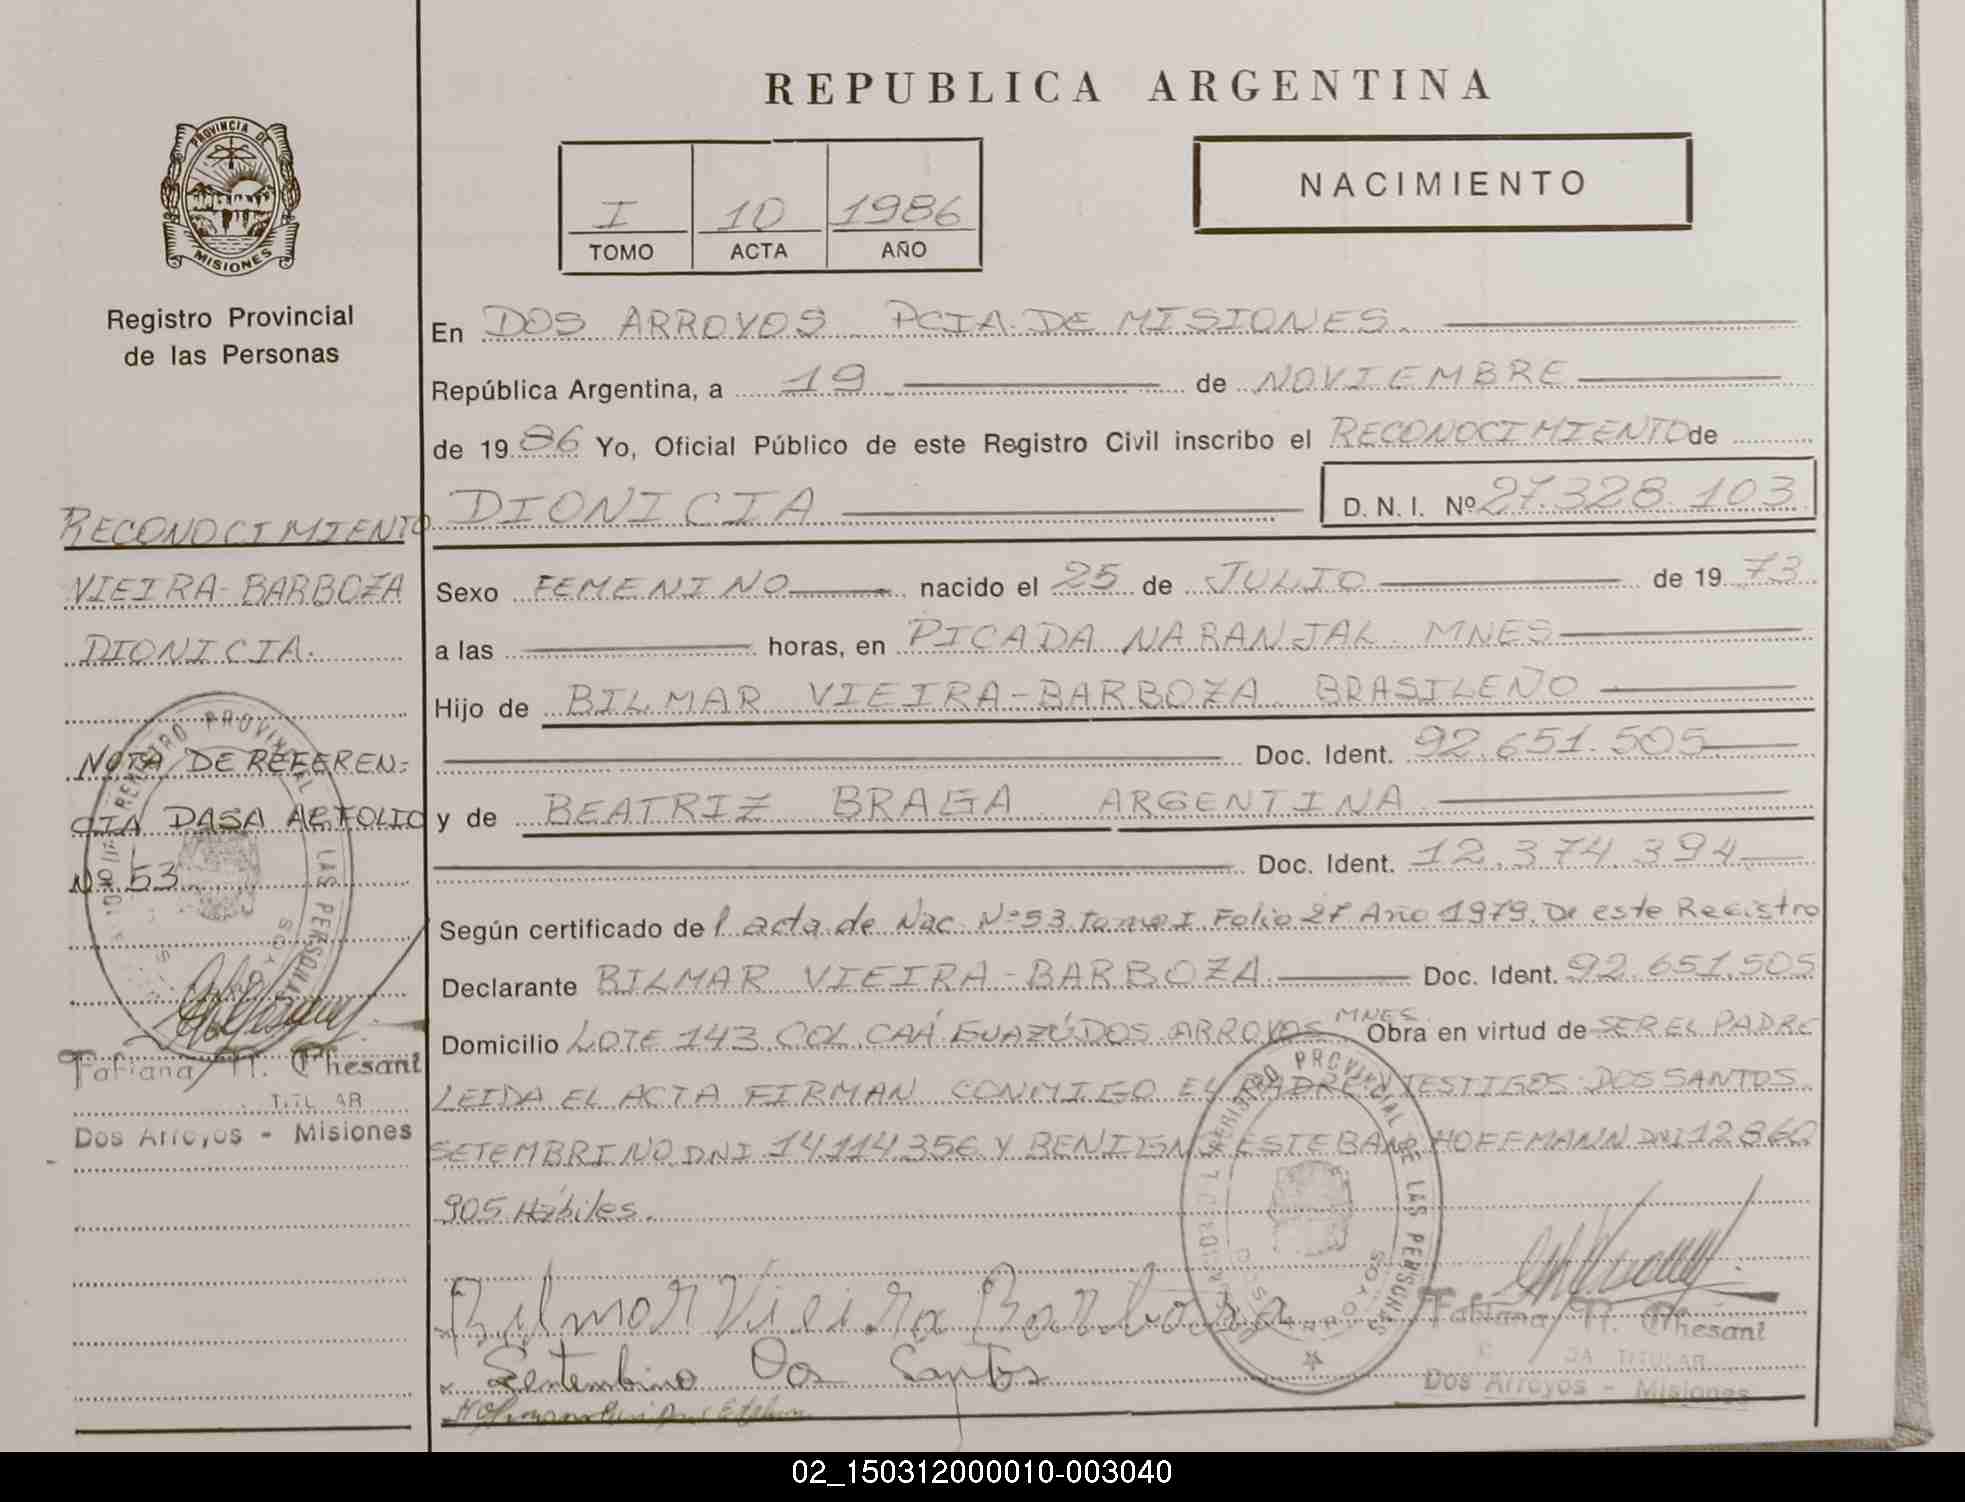 REPUBLICA ARGENTINA
PROVINCIA DE
MISIONES
Registro Provincial
de las Personas
I 10 1986
TOMO ACTA AÑO
NACIMIENTO
En DOS ARROYOS PCIA. DE MISIONES.
República Argentina, a 19 de NOVIEMBRE
de 1986 Yo, Oficial Público de este Registro Civil inscribo el RECONOCIMIENTO de
DIONICIA D. N. I. Nº 27.328.103
Sexo FEMENINO nacido el 25 de JULIO de 1973
a las horas, en PICADA NARANJAL MNES
Hijo de BILMAR VIEIRA-BARBOZA BRASILEÑO
Doc. Ident. 92.651.505
y de BEATRIZ BRAGA ARGENTINA
Doc. Ident. 12.374.394
Según certificado de l acta de Nac. Nº53 Tomo I Folio 27 Año 1979. De este Registro
Declarante BILMAR VIEIRA-BARBOZA Doc. Ident. 92.651.505
Domicilio LOTE 143 COL CAÁ GUAZÚ DOS ARROYOS MNES. Obra en virtud de SER EL PADRE
LEIDA EL ACTA FIRMAN CONMIGO EL PADRE Y TESTIGOS DOS SANTOS
SETEMBRINO DNI 14114.356 Y BENIGNO ESTEBAN HOFFMANN DNI 12860
905 Hábiles.
Bilmar Vieira Barboza
Setembrino Dos Santos
RECONOCIMIENTO
VIEIRA-BARBOZA
DIONICIA.
NOTA DE REFEREN=
CIA PASA AL FOLIO
Nº 53
REGISTRO PROVINCIAL DE LAS PERSONAS
Fabiana N. Chesani
TITULAR
Dos Arroyos - Misiones
REGISTRO PROVINCIAL DE LAS PERSONAS
DOS ARROYOS
Fabiana N. Chesani
TITULAR
Dos Arroyos - Misiones
02_150312000010-003040